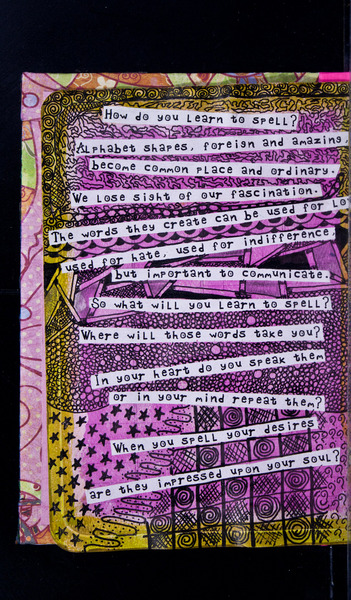 How do you learn to spell?
Alphabet shapes, foreign and amazing,
become common place and ordinary.
We lose sight of our fascination.
The words they create can be used for Lo
used for hate, used for indifference,
but important to communicate.
So what will you learn to spell?
Where will those words take you?
In your heart do you speak them
or in your mind repeat them?
When you spell your desires
are they impressed upon your soul?